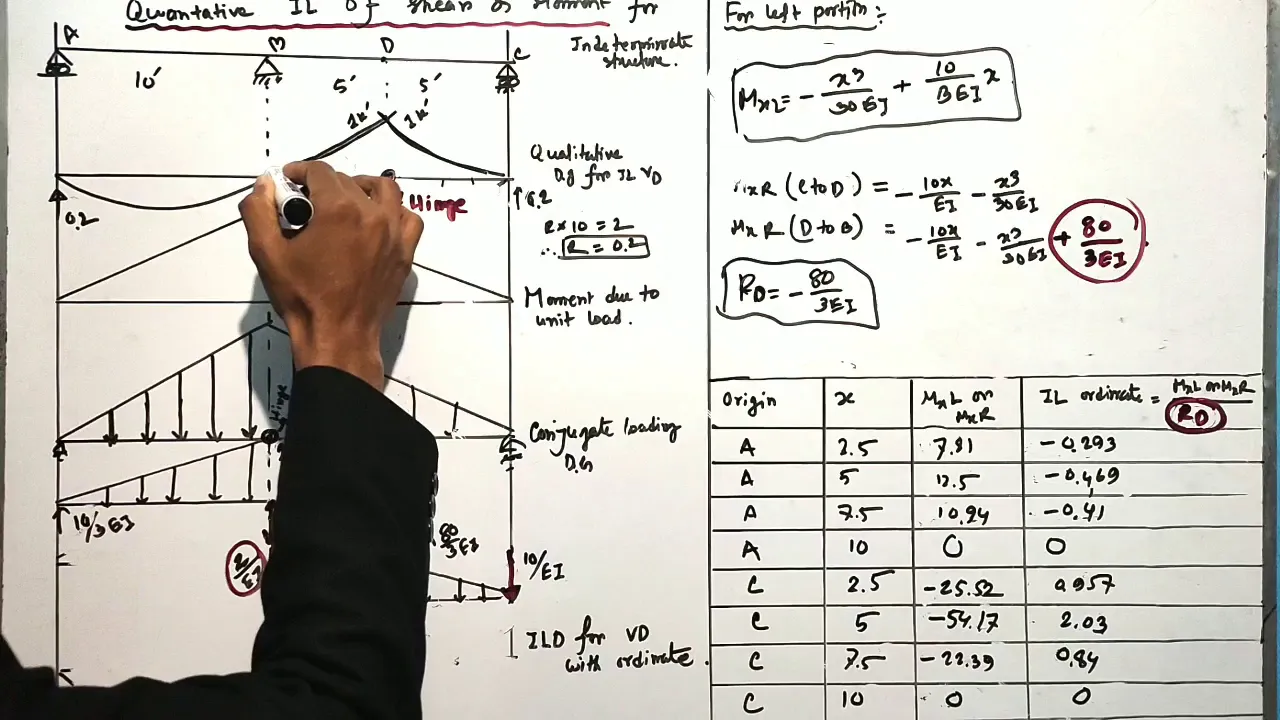 Quantative IL of shear or Moment for
Indeterminate
structure.
A
B
D
C
10'
5'
5'
1k'
1k'
Qualitative
D.g for IL VD
0.2
0.2
Hinge
R*10 = 2
∴ R = 0.2
Moment due to
unit load.
Hinge
Conjugate loading
D.G
10/3EI
80/3EI
10/EI
ILD for VD
with ordinate.
For left portion:-
MxL = - x³/30EI + 10/3EI x
MxR (C to D) = - 10x/EI - x³/30EI
MxR (D to B) = - 10x/EI - x³/30EI + 80/3EI
RD = - 80/3EI
Origin x MxL or MxR IL ordinate = MxL or MxR / RD
A 2.5 7.81 -0.293
A 5 12.5 -0.469
A 7.5 10.94 -0.41
A 10 0 0
C 2.5 -25.52 0.957
C 5 -54.17 2.03
C 7.5 -22.39 0.84
C 10 0 0